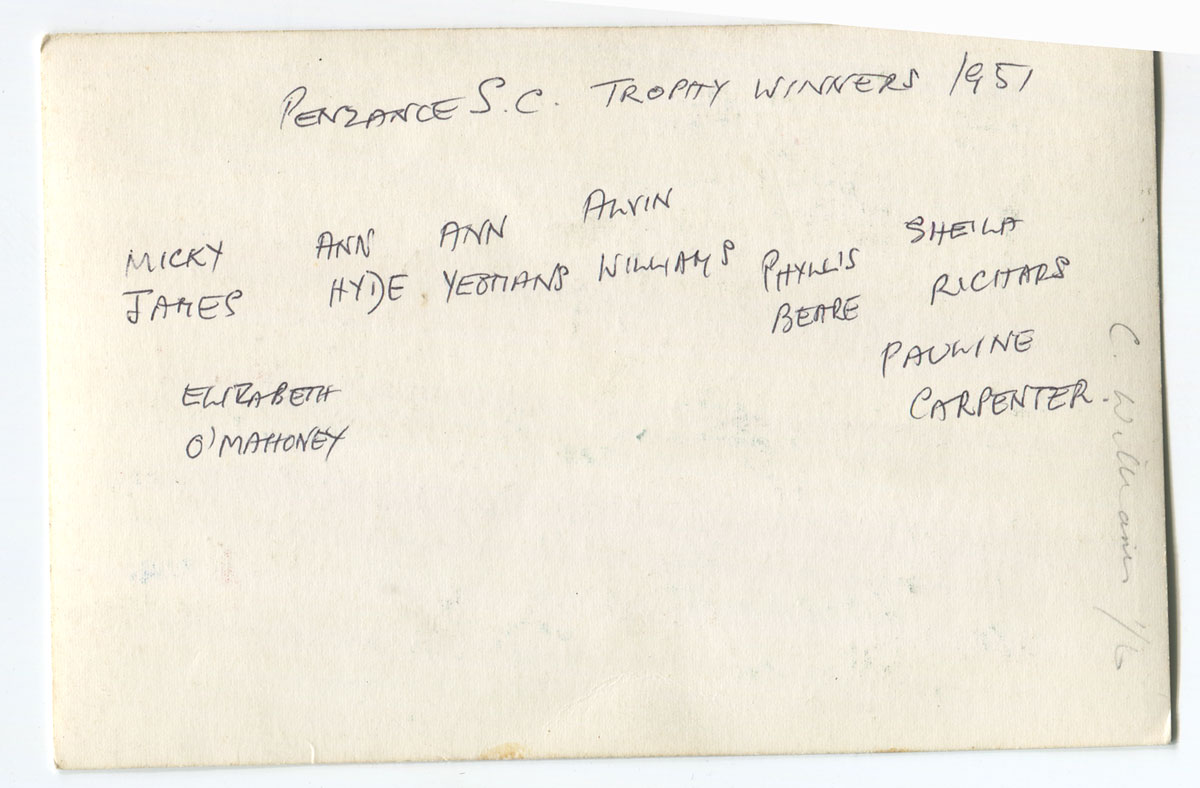 PENZANCE S.C. TROPHY WINNERS 1951
MICKY
JAMES
ANN
HYDE
ANN
YEOMANS
ALVIN
WILLIAMS
PHYLLIS
BEARE
SHEILA
RICHARS
PAULINE
CARPENTER.
ELIZABETH
O'MAHONEY
C. Williams 1/6